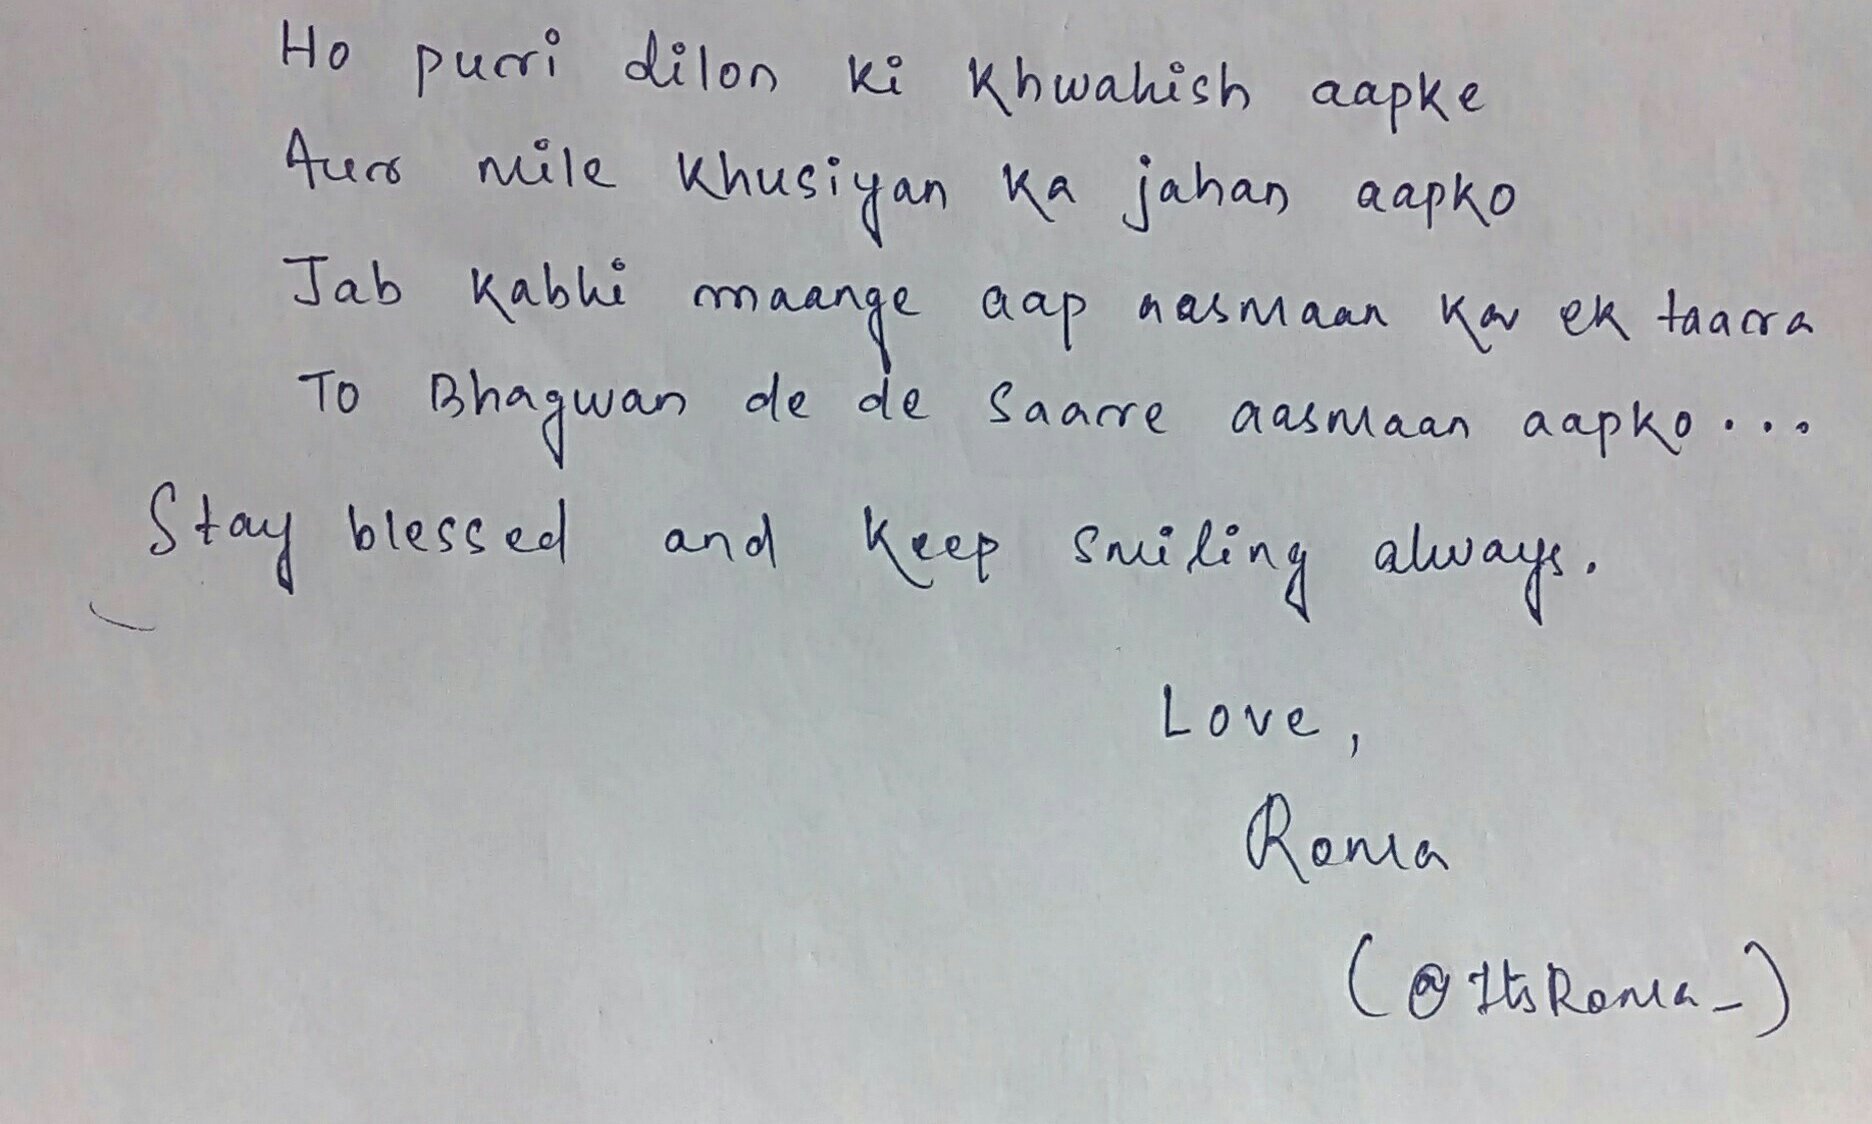 Ho purri dilon ki khwahish aapke
Aur mile khusiyan ka jahan aapko
Jab kabhi maange aap aasmaan ka ek taara
To Bhagwan de de saare aasmaan aapko...
Stay blessed and keep smiling always.
Love,
Roma
(@ItsRoma_)